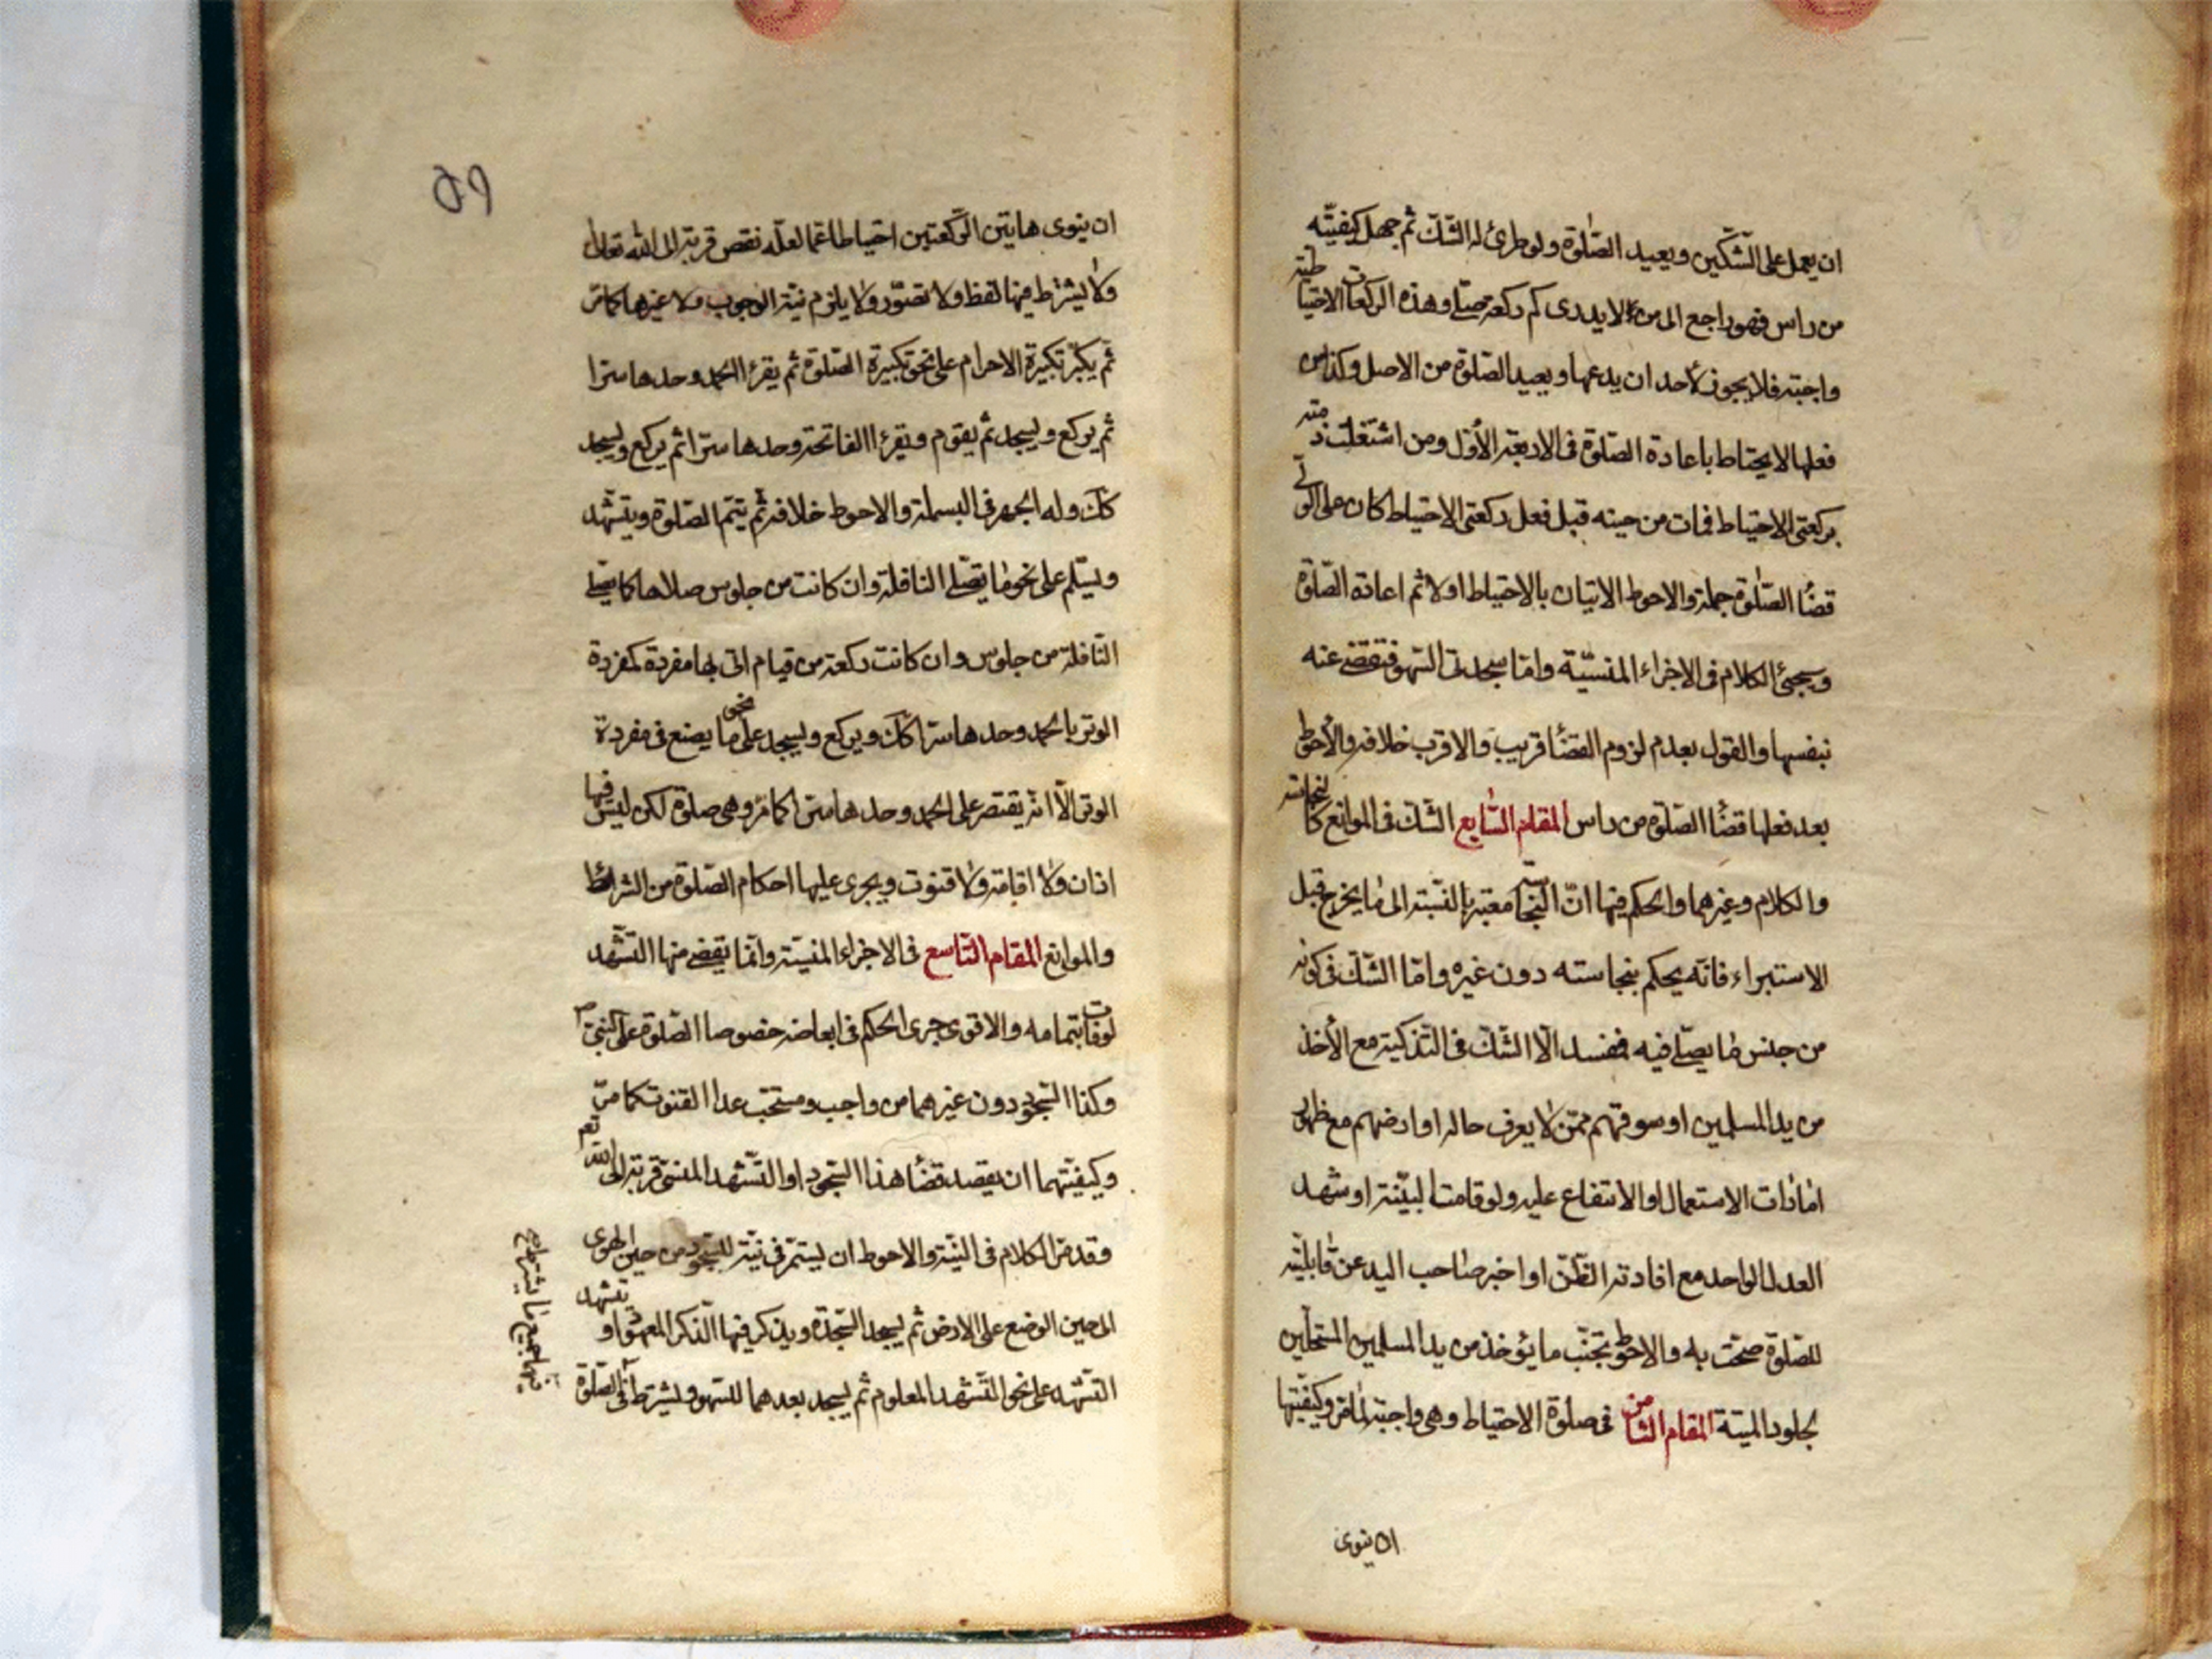 ان يعمل على الشّكين ويعيد الصّلوة ولو طرئ له الشّك ثم جهل كيفيّته
من راس فهو راجع الى من لا يدرى كم ركعة صلّى وهذه الركعات الاحتياطيّة
واجبة فلا يجوز لأحد ان يدعها ويعيد الصّلوة من الاصل وكذا من
فعلها لا يحتاط باعادة الصّلوة فى الاربعة الأوّل ومن اشتغلت ذمّته
بركعتى الاحتياط فمات من حينه قبل فعل ركعتى الاحتياط كان على الولىّ
قضاء الصّلوة جملة والاحوط الاتيان بالاحتياط اولا ثم اعادة الصّلوة
وسيجئ الكلام فى الاجزاء المنسيّة وامّا سجدتى السّهو فتقضى عنه
بنفسها والقول بعدم لزوم القضاء قريب والاقرب خلافه والأحوط
بعد فعلها قضاء الصّلوة من راس المقام السّابع الشّك فى الموانع كالنجاسة
والكلام وغيرهما والحكم فيها انّ النّجاسة معتبرة بالنّسبة الى ما يخرج قبل
الاستبراء فانّه يحكم بنجاسته دون غيره وامّا الشّك فى كونه
من جنس ما يصلّى فيه فمفسد الّا الشّك فى التّذكية مع الأخذ
من يد المسلمين او سوقهم ممّن لا يعرف حاله او ارضهم مع ظهور
امارات الاستعمال او الانتفاع عليه ولو قامت البيّنة او شهد
العدل الواحد مع افادته الظّن او اخبر صاحب اليد عن قابليّة
للصّلوة صحّت به والاحوط تجنّب ما يؤخذ من يد المسلمين المستحلّين
لجلود الميتة المقام الثامن فى صلوة الاحتياط وهى واجبة لما مرّ وكيفيّتها
ان ينوى
٥٩
ان ينوى هاتين الرّكعتين احتياطا عمّا لعلّه نقص قربة الى الله تعالى
ولا يشترط فيها لفظ ولا تصوّر ولا يلزم نيّة الوجوب ولا غيرها كما مرّ
ثم يكبّر تكبيرة الاحرام على نحو تكبيرة الصّلوة ثم يقرء الحمد وحدها سرّا
ثم يركع ويسجد ثم يقوم ويقرء الفاتحة وحدها سرّا ثم يركع ويسجد
كك وله الجهر فى البسملة والاحوط خلافه ثم يتمّ الصّلوة ويتشهّد
ويسلّم على نحو ما يصلّى النافلة وان كانت من جلوس صلاها كما يصلّى
النّافلة من جلوس وان كانت ركعة من قيام اتى بها مفردة كمفردة
الوتر بالحمد وحدها سرّا كك ويركع ويسجد على نحو ما يصنع فى مفردة
الوتر الّا انّه يقتصر على الحمد وحدها سرّا كما مرّ وهى صلوة لكن ليس فيها
اذان ولا اقامة ولا قنوت ويجرى عليها احكام الصّلوة من الشرائط
والموانع المقام التّاسع فى الاجزاء المنسيّة وانّما يقضى منها التّشهّد
لو فات بتمامه والاقوى جرى الحكم فى ابعاضه خصوصا الصّلوة على النبىّ ص
وكذا السّجود دون غيرهما من واجب ومستحبّ عدا القنوت كما مرّ
وكيفيّتهما ان يقصد قضاء هذا السّجود او التّشهّد المنسىّ قربة الى الله تعم
وقد مرّ الكلام فى النيّة والاحوط ان يستمرّ فى نيّة السّجود من حين الهوى
الى حين الوضع على الارض ثم يسجد السّجدة ويذكر فيها الذّكر المعهود او يتشهد
التّشهّد على نحو التّشهّد المعلوم ثم يسجد بعدهما للسّهو ويشترط فى الصّلوة
فيها جميع ما يشترط فى